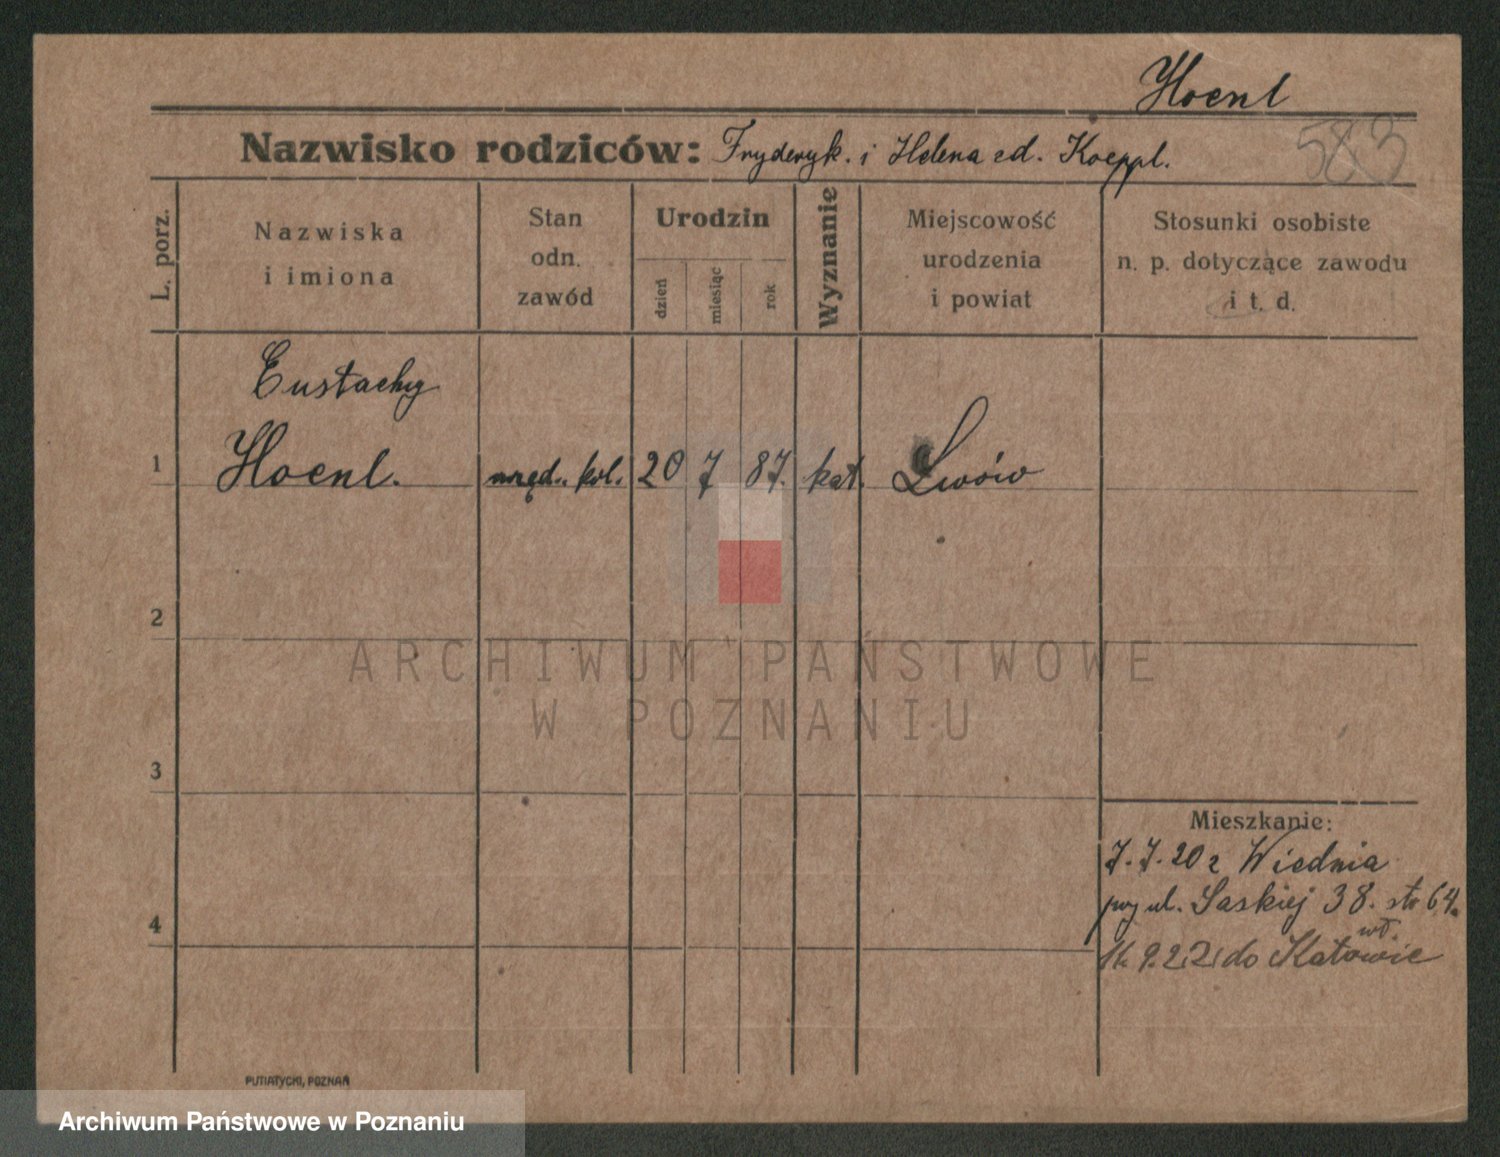 Hoenl
583
Nazwisko rodziców: Fryderyk. i Helena zd. Koeppl.
L. porz.
Nazwiska
i imiona
Stan
odn.
zawód
Urodzin
dzień
miesiąc
rok
Wyznanie
Miejscowość
urodzenia
i powiat
Stosunki osobiste
n. p. dotyczące zawodu
i t. d.
Eustachy
1 Hoenl. urzęd. kol. 20 7 87. kat. Lwów
2
ARCHIWUM PAŃSTWOWE
W POZNANIU
3
Mieszkanie:
7.7.20 z Wiednia
przy ul. Saskiej 38.
4
wł.
9.22 do Katowic
PUTIATYCKI, POZNAŃ
Archiwum Państwowe w Poznaniu